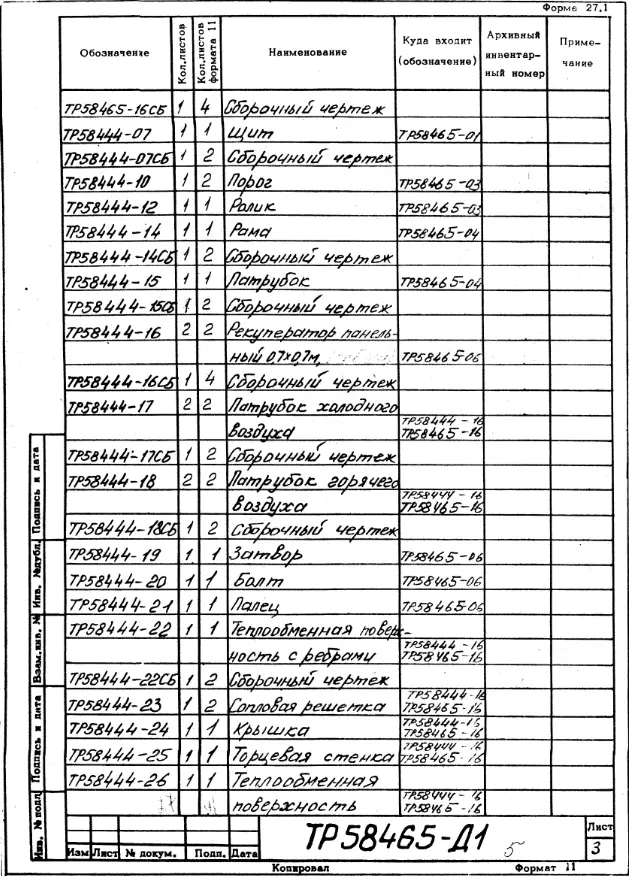 Форма 27.1
Обозначение Кол.листов Кол.листов формата 11 Наименование Куда входит (обозначение) Архивный инвентарный номер Примечание
ТР58465-16СБ 1 4 Сборочный чертеж
ТР58444-07 1 1 Щит ТР58465-01
ТР58444-07СБ 1 2 Сборочный чертеж
ТР58444-10 1 2 Порог ТР58465-03
ТР58444-12 1 1 Ролик ТР58465-03
ТР58444-14 1 1 Рама ТР58465-04
ТР58444-14СБ 1 2 Сборочный чертеж
ТР58444-15 1 1 Патрубок ТР58465-04
ТР58444-15СБ 1 2 Сборочный чертеж
ТР58444-16 2 2 Рекуператор панель-
ный 0,7х0,7м, ТР58465-06
ТР58444-16СБ 1 4 Сборочный чертеж
ТР58444-17 2 2 Патрубок холодного
ТР58444-16
воздуха ТР58465-16
ТР58444-17СБ 1 2 Сборочный чертеж
ТР58444-18 2 2 Патрубок горячего
ТР58444-16
воздуха ТР58465-16
ТР58444-18СБ 1 2 Сборочный чертеж
ТР58444-19 1 1 Затвор ТР58465-06
ТР58444-20 1 1 Болт ТР58465-06
ТР58444-21 1 1 Палец ТР58465-06
ТР58444-22 1 1 Теплообменная поверх-
ТР58444-16
ность с ребрами ТР58465-16
ТР58444-22СБ 1 2 Сборочный чертеж
ТР58444-16
ТР58444-23 1 2 Сопловая решетка ТР58465-16
ТР58444-16
ТР58444-24 1 1 Крышка ТР58465-16
ТР58444-16
ТР58444-25 1 1 Торцевая стенка ТР58465-16
ТР58444-26 1 1 Теплообменная
ТР58444-16
поверхность ТР58465-16
Инв. № подл. Подпись и дата Взам.инв. № Инв. №дубл. Подпись и дата
Изм Лист № докум. Подп. Дата
ТР58465-Д1
5
Лист
3
Копировал Формат 11